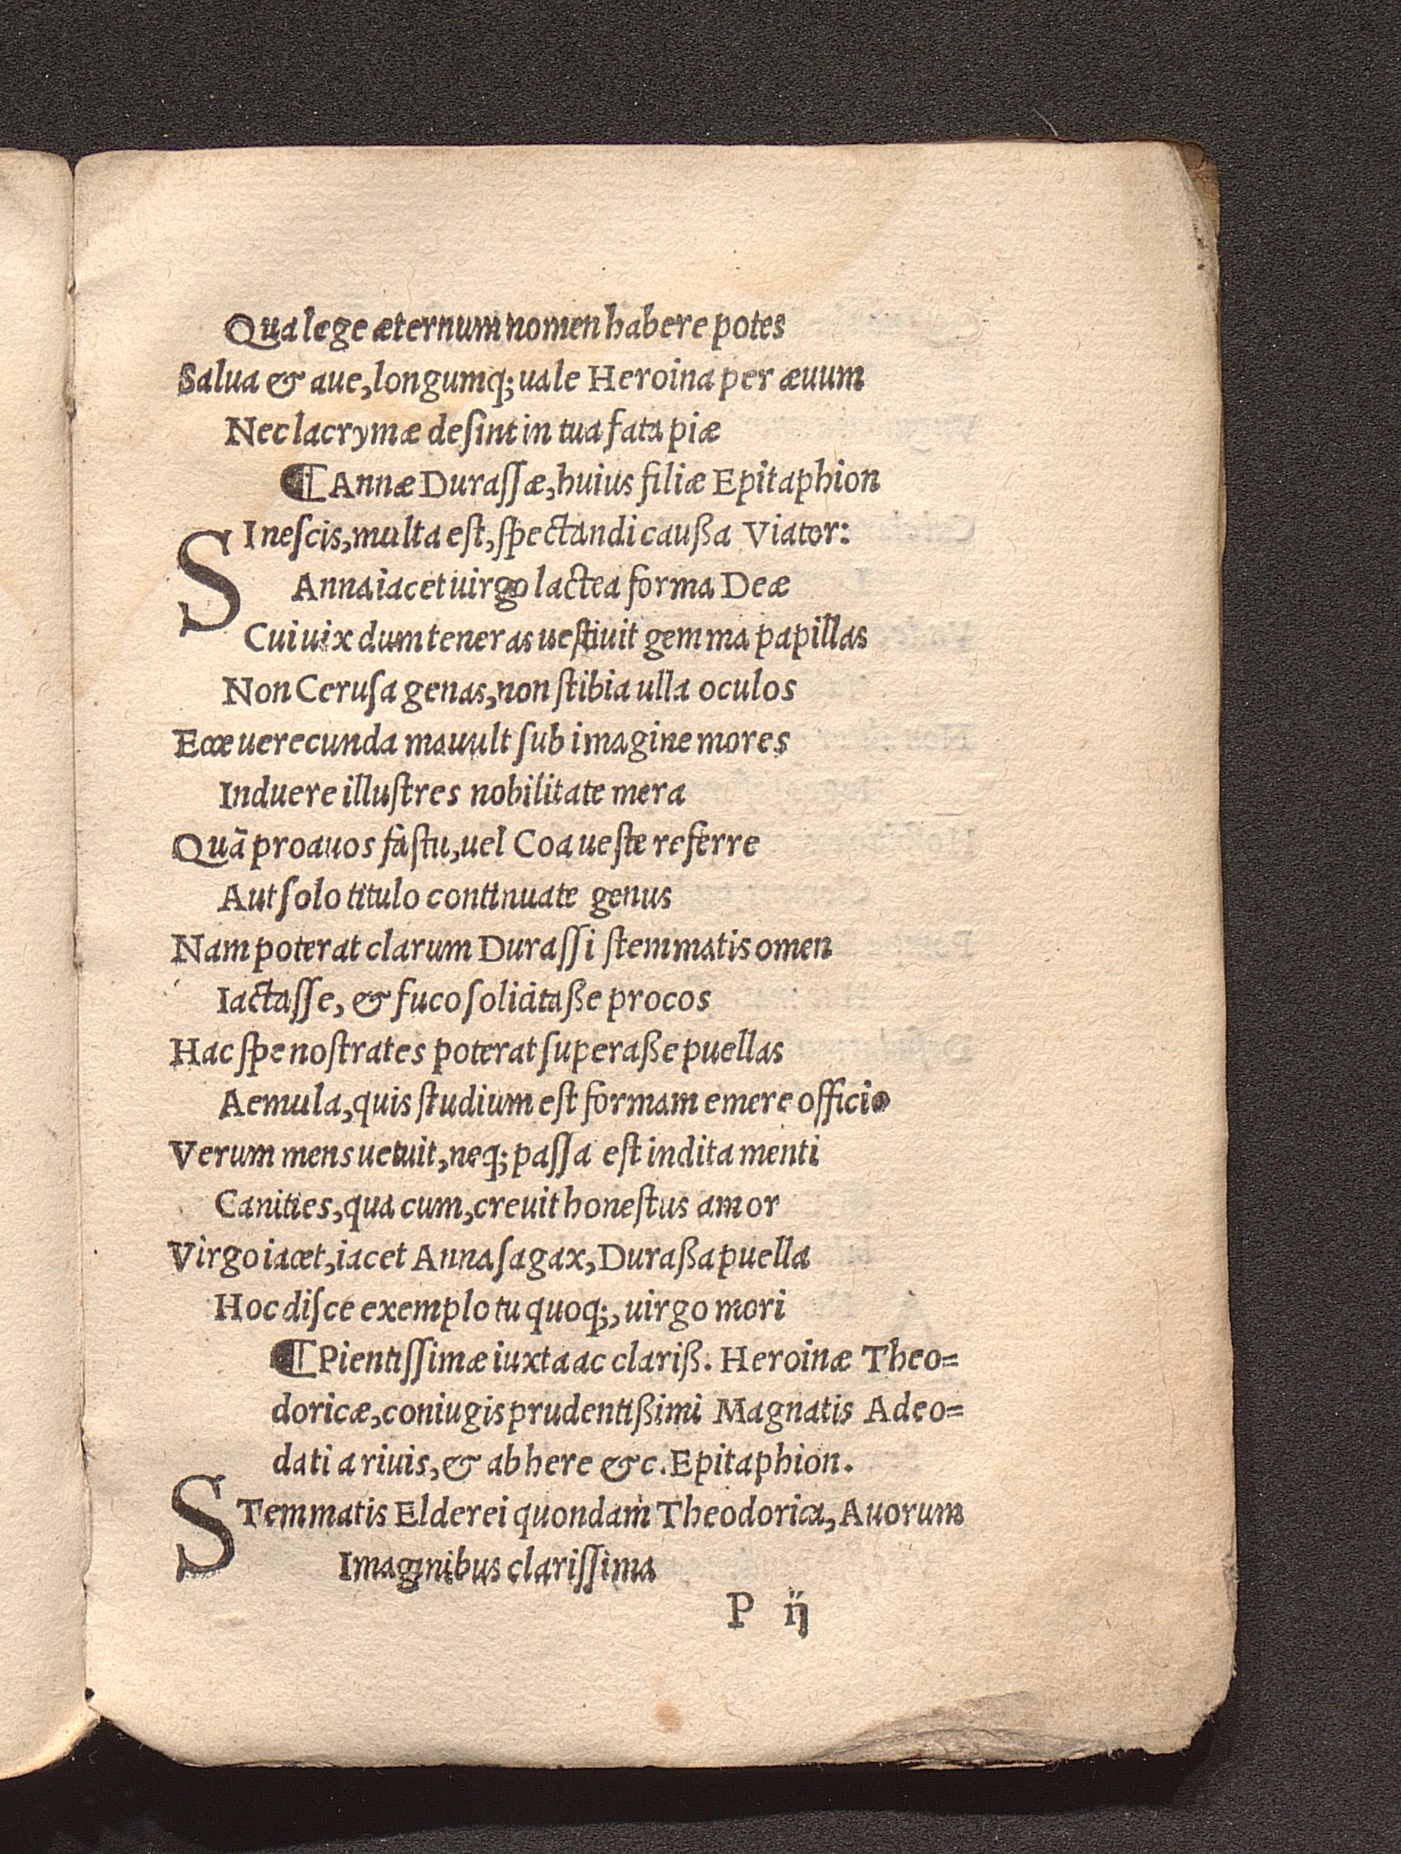 Qua lege æternum nomen habere potes
Salua & aue, longumq; uale Heroina per æuum
Nec lacrymæ deſint in tua fata piæ
¶ Annæ Duraſſæ, huius filiæ Epitaphion
SI neſcis, multa eſt, ſpectandi caußa Viator:
Anna iacet uirgo lactea forma Deæ
Cui uix dum teneras ueſtiuit gemma papillas
Non Ceruſa genas, non ſtibia ulla oculos
Ecce uerecunda mauult ſub imagine mores
Induere illuſtres nobilitate mera
Quā proauos faſtu, uel Coa ueſte referre
Aut ſolo titulo continuate genus
Nam poterat clarum Duraſſi ſtemmatis omen
Iactaſſe, & fuco ſolicitaße procos
Hac ſpe noſtrates poterat ſuperaße puellas
Aemula, quis ſtudium eſt formam emere officio
Verum mens uetuit, neq; paſſa eſt indita menti
Canities, qua cum, creuit honeſtus amor
Virgo iacet, iacet Anna ſagax, Duraßa puella
Hoc diſce exemplo tu quoq;, uirgo mori
¶ Pientiſſimæ iuxta ac clariß. Heroinæ Theo=
doricæ, coniugis prudentißimi Magnatis Adeo=
dati a riuis, & ab here &c. Epitaphion.
STemmatis Elderei quondam Theodorica, Auorum
Imaginibus clariſſima
P ij